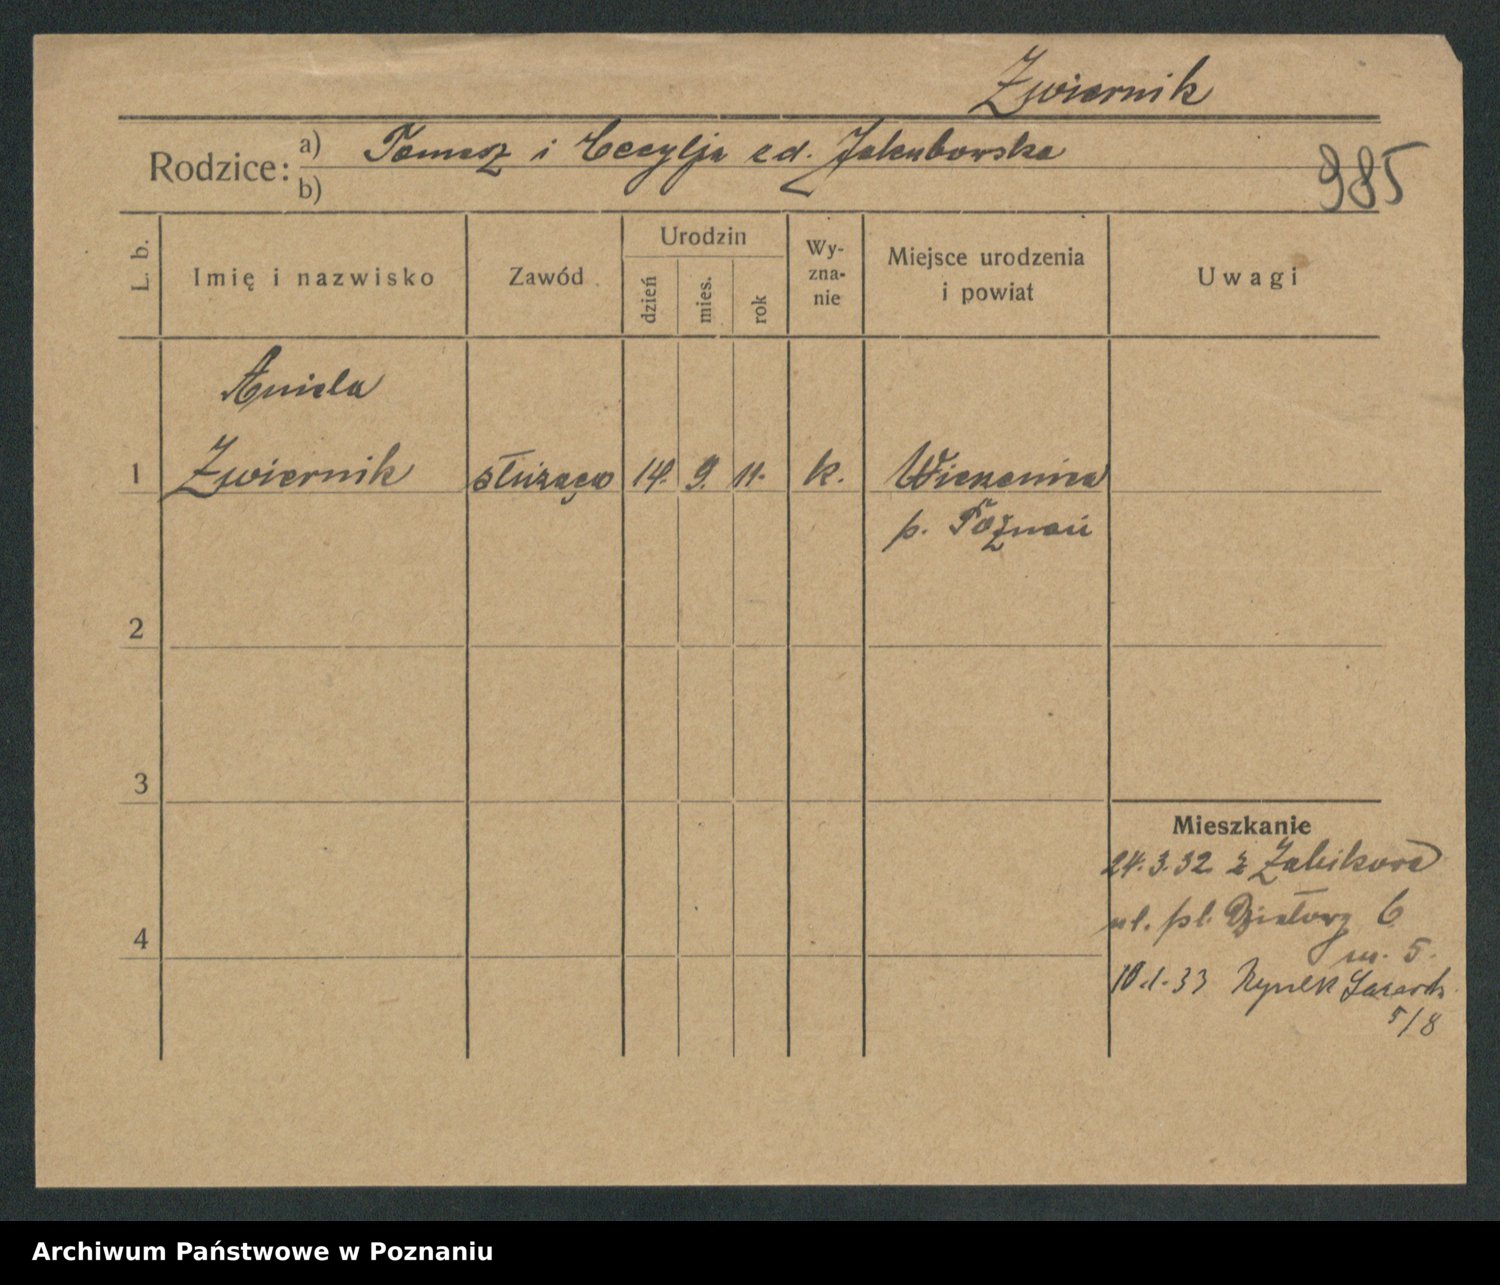 Zwiernik
Rodzice: a) Tomasz i Cecylja zd. Jakubowska
b)
985
L. b.
Imię i nazwisko
Zawód
Urodzin
dzień
mies.
rok
Wy-
zna-
nie
Miejsce urodzenia
i powiat
Uwagi
Aniela
1 Zwiernik służąca 14. 9. 11. k. Wierzenica
p. Poznań
2
3
Mieszkanie
24.3.32 z Żabikowa
ul. pl. Działowy 6
m. 5.
4
10.1.33 Rynek Łazarsk.
5/8
Archiwum Państwowe w Poznaniu